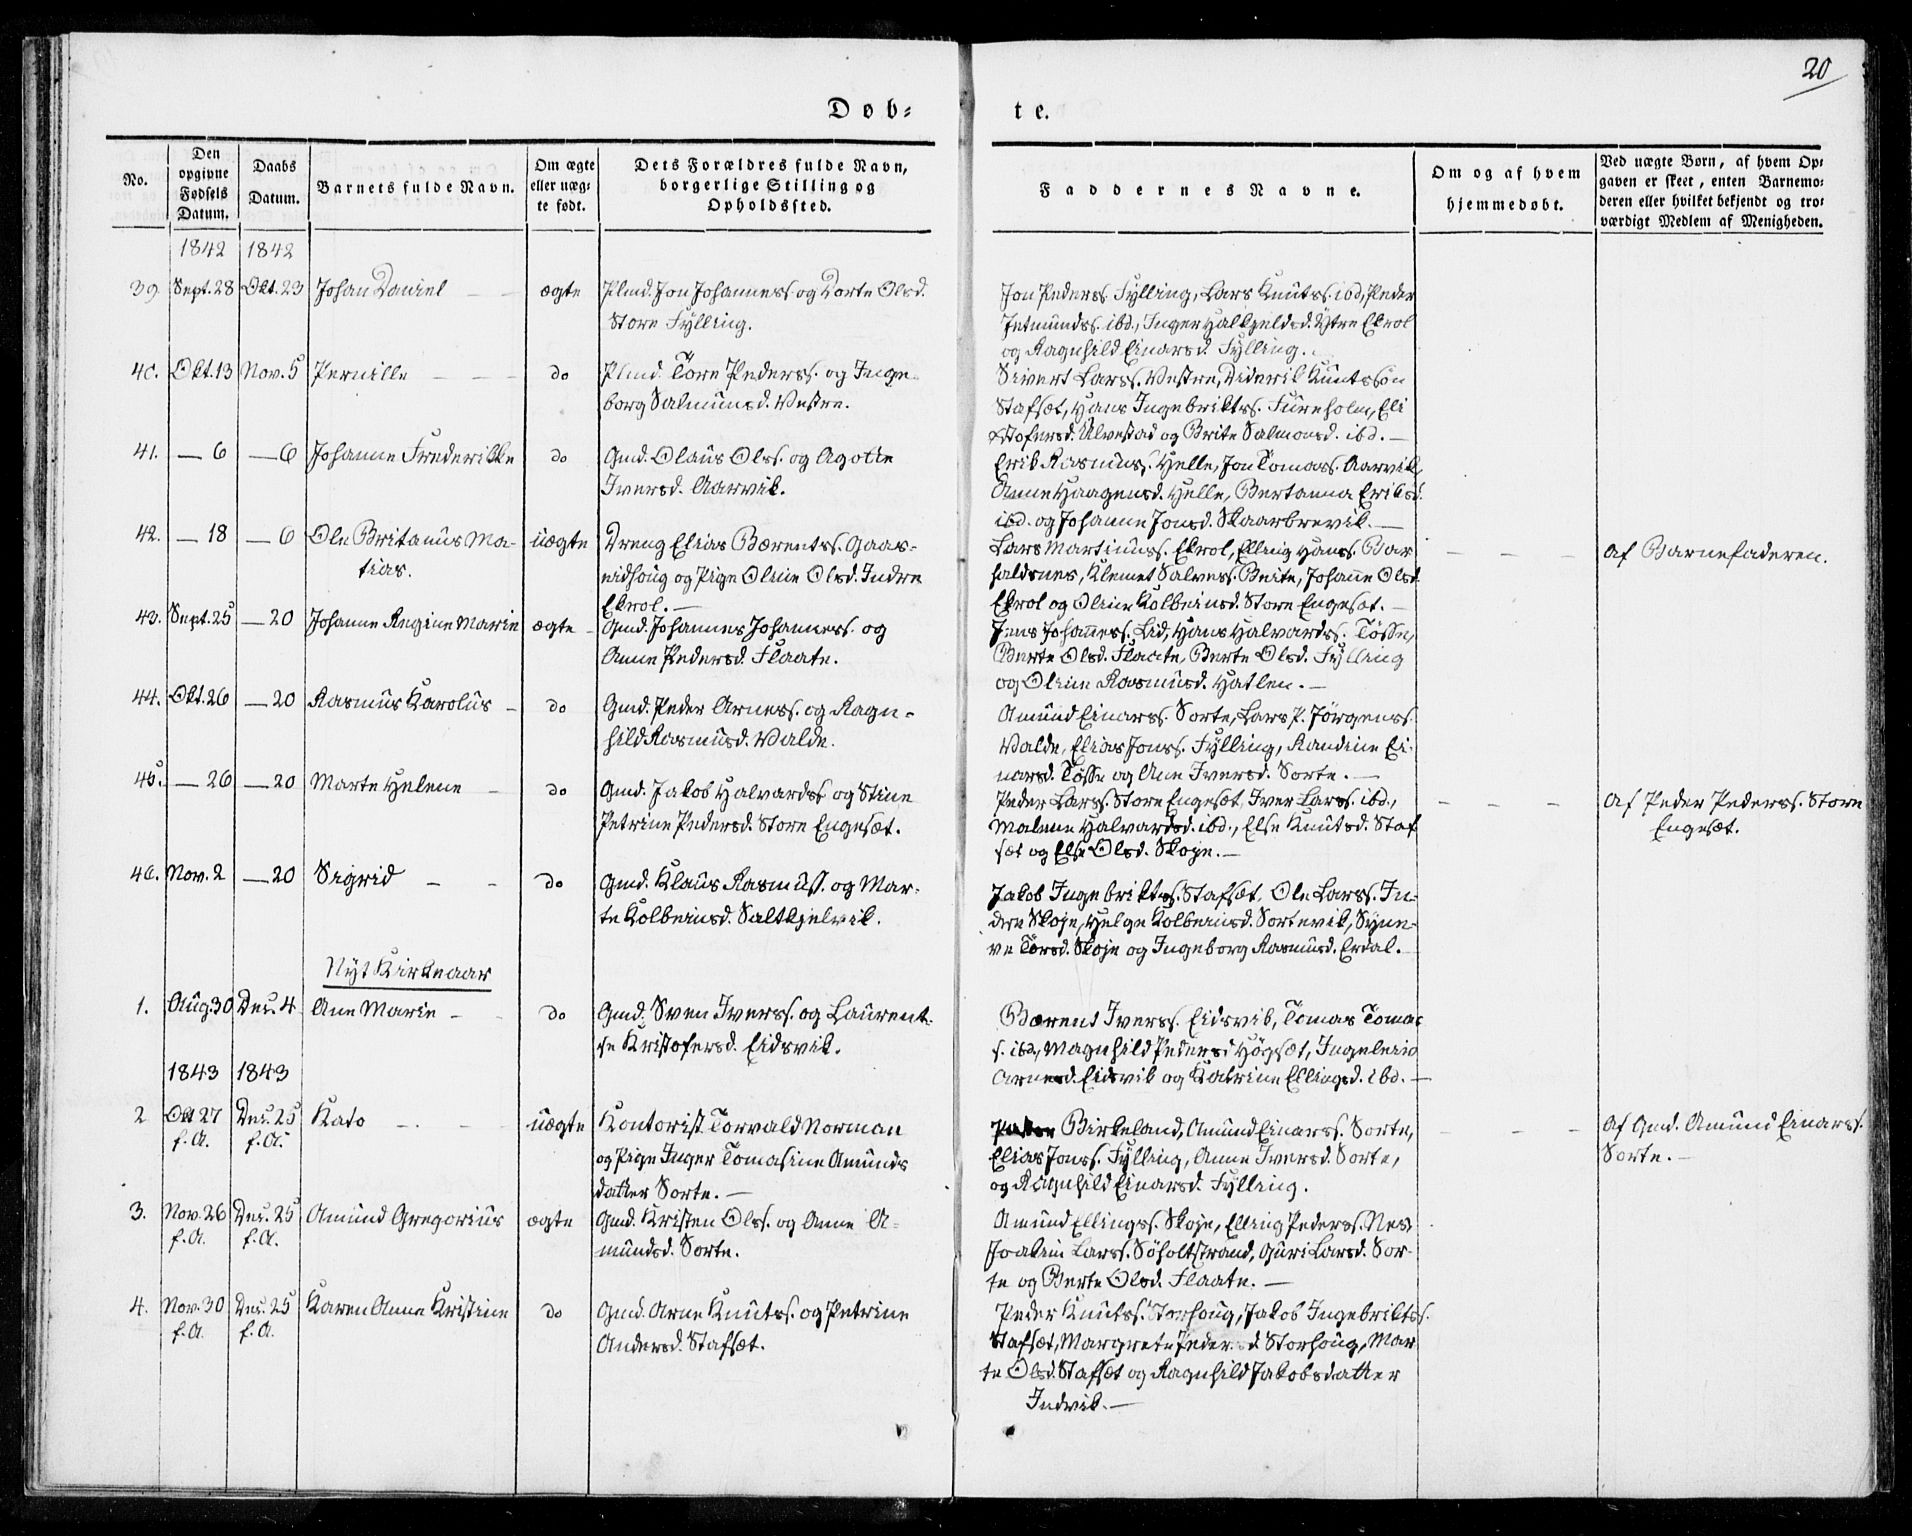 20
Döb-
te.
No.
Den opgivne Födsels Datum.
Daabs Datum.
Barnets fulde Navn.
Om ægte eller uæg-
te født.
Dets Forældres fulde Navn,
borgerlige Stilling og
Opholdssted.
Faddernes Navne.
Om og af hvem
hjemmedöbt.
Ved uægte Börn, af hvem Op-
gaven er skeet, enten Barnemo-
deren eller hvilket bekjendt og tro-
værdigt Medlem af Menigheden.
1842 1842
39 Sept. 28 Okt. 23 Johan Daniel — — ægte Plmd. Jon Johanness. og Dorte Olsd.
Store Fylling.
Jon Peders. Fylling, Lars Knuts. ibd, Peder
Jetmunds. ibd., Inger Halkjeldsd. Ytre Ekrol
og Ragnhild Einarsd. Fylling.
40. Okt. 13 Nov. 5 Pernille — — — do Plmd. Tore Peders. og Inge-
borg Salmunsd. Vestre.
Sivert Larss. Vestre, Diderik Knutssön
Stafsæt, Hans Ingebrikts. Fureholm, Eli
Kstofersd. Ulvestad og Brite Salmonsd. ibd. —
41. — 6 — 6 Johanne Frederikke do Gmd. Olaus Ols. og Agotte
Iversd. Aarvik.
Erik Rasmuss. Helle, Jon Tomas. Aarvik,
Anne Haagensd. Helle, Bertanna Eriksd.
ibd. og Johanne Jonsd. Skaarbrevik. —
42. — 18 — 6 Ole Britanus Ma-
tias.
uægte Dreng Elias Bærents. Gaas-
nidhoug og Pige Oline Olsd. Indre
Ekrol. —
Lars Martinus. Ekrol, Elling Hans. Bar
haldsnes, Klemet Salves. Beite, Johanne Olsd.
Ekrol og Oline Kolbeinsd. Store Engeset. —
— — —
Af Barnefaderen.
43. Sept. 25 — 20 Johanne Regine Marie ægte Gmd. Johannes Johanness. og
Anne Pedersd. Flaate.
Jens Johanness. Lid, Hans Halvards. Tösse,
Berte Olsd. Flaate, Berte Olsd. Fylling
og Oline Rasmusd. Hatlen. —
44. Okt. 26 — 20 Rasmus Karolus — do Gmd. Peder Arness. og Ragn-
hild Rasmusd. Valde.
Amund Einars. Sorte, Lars P. Jörgens.
Valde, Elias Jons. Fylling, Randine Ei-
narsd. Tösse og Ane Iversd. Sorte. —
45. — 26 — 20 Marte Helene — do Gmd. Jakob Halvards og Stine
Petrine Pedersd. Store Engesæt.
Peder Larss. Store Engesæt, Iver Larss. ibd.,
Malene Halvardsd. ibd., Else Knutsd. Staf
sæt og Else Olsd. Skoje. —
— — —
Af Peder Peders. Store
Engesæt.
46. Nov. 2 — 20 Sigrid — — do Gmd. Klaus Rasmuss. og Mar-
te Kolbeinsd. Saltkjelvik.
Jakob Ingebrikts. Stafsæt, Ole Larss. In-
dre Skoje, Helge Kolbeinsd. Sortevik, Synne-
ve Torsd. Skoje og Ingeborg Rasmusd. Erdal. —
Nyt Kirkeaar
1. Aug. 30 Dec. 4 Ane Marie — do Gmd. Sven Ivers. og Laurent-
se Kristofersd. Eidsvik.
Bærent Ivers. Eidsvik, Tomas Tomas
s. ibd, Magnhild Pedersd Högsæt, Ingeleiv
Arnesd. Eidsvik og Katrine Ellingsd. ibd. —
1843 1843
2 Okt 27
f. A.
Dec. 25
f. A.
Kato — . — — uægte Kontorist Torvald Norman
og Pige Inger Tomasine Amunds
datter Sorte. —
Birkeland, Amund Einars. Sorte,
Elias Jons. Fylling, Anne Iversd. Sorte,
og Ragnhild Einarsd. Fylling.
— — —
Af Gmd. Amund Einars.
Sorte. —
3. Nov. 26
f. A.
Dec. 25
f. A.
Amund Gregorius ægte Gmd. Kristen Ols. og Anne A-
mundsd. Sorte.
Amund Ellings. Skoje, Elling Peders. Nes,
Joakim Larss. Söholtstrand, Guri Larsd. Sor-
te og Berte Olsd. Flaate. —
4. Nov. 30
f. A.
Dec. 25
f. A.
Karen Anne Kristine do Gmd. Arne Knuts. og Petrine
Andersd. Stafsæt.
Peder Knuts. Storhoug, Jakob Ingebrikts.
Stafsæt, Margrete Peder. d. Storhoug, Mar
te Olsd. Stafsæt og Ragnhild Jakobsdatter
Indvik. —